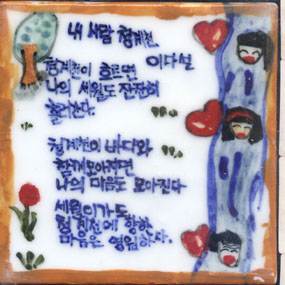 내 사랑 청계천
이다선
청계천이 흐르면
나의 세월도 잔잔히
흘러간다.
청계천이 바다와
함께 모아지면
나의 마음도 모아진다
세월이 가도
청계천에 향한
마음은 영원하다.